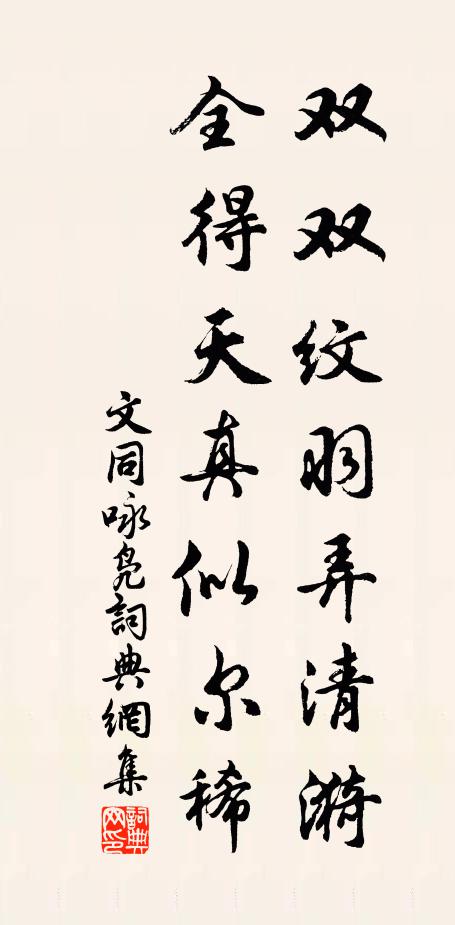 双双纹羽弄清漪
全得天真似尔稀
文同咏凫詞典網集
詞典网印